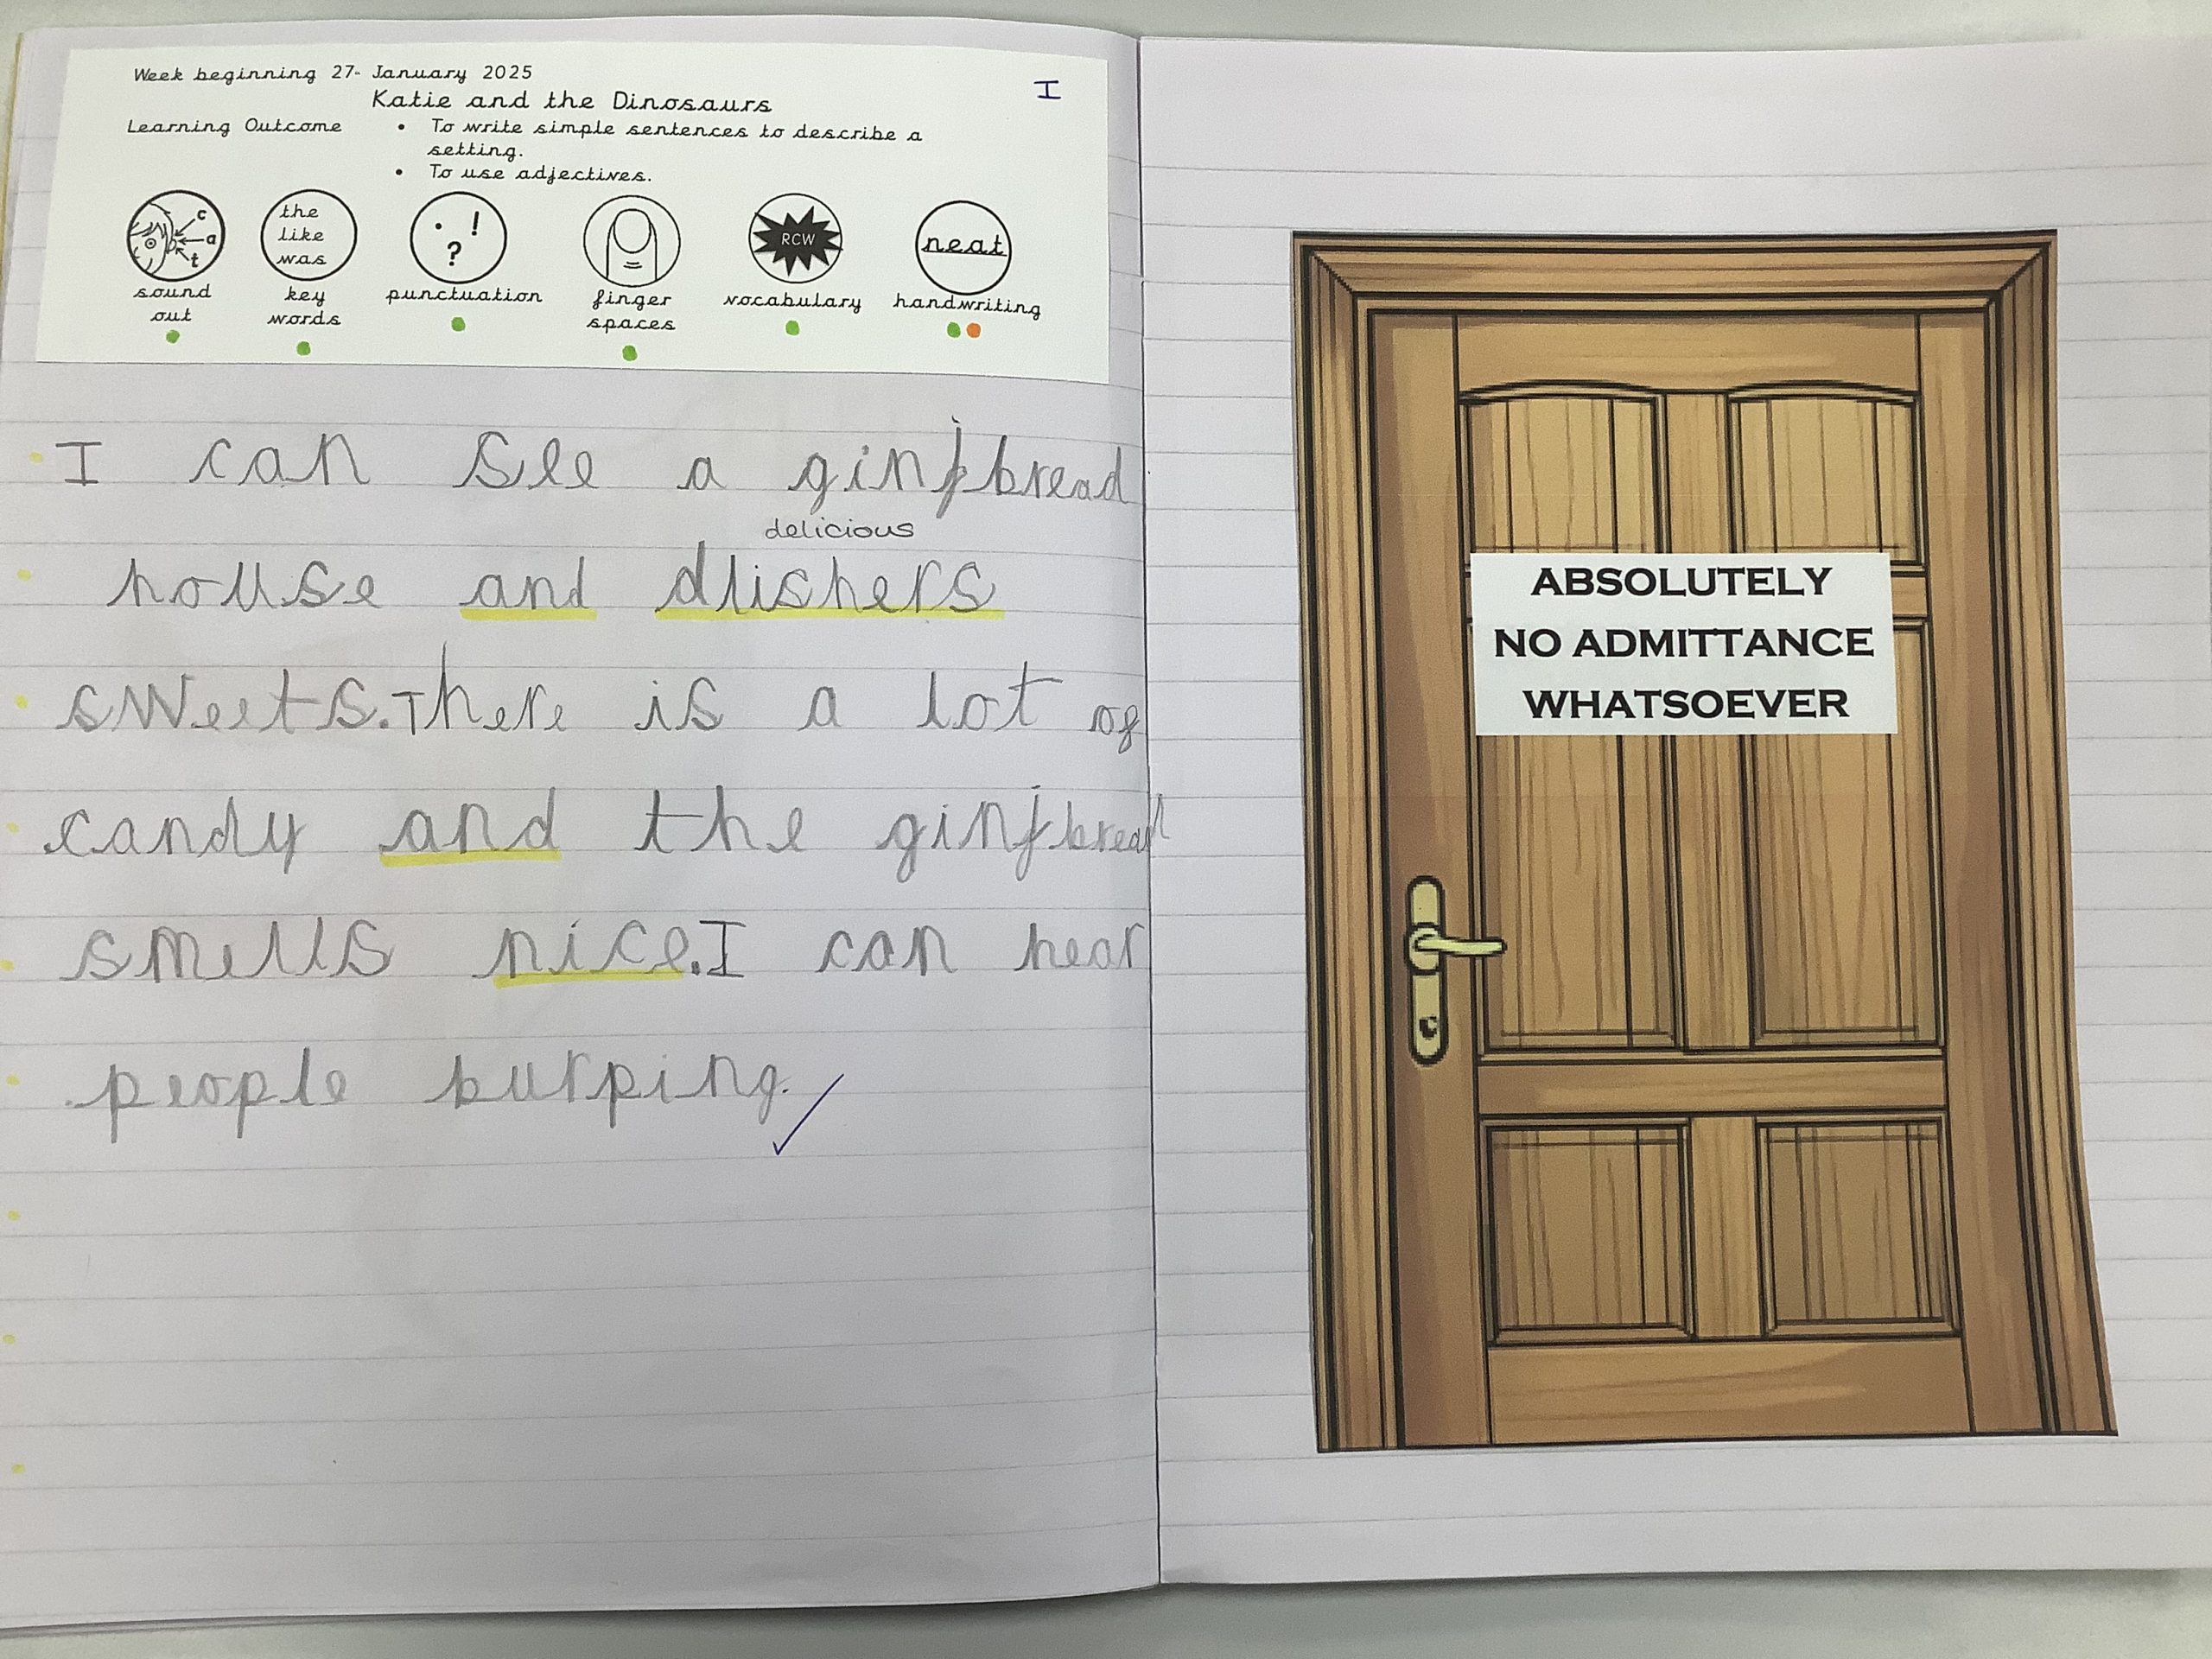 Week beginning 27- January 2025
I
Katie and the Dinosaurs
Learning Outcome
• To write simple sentences to describe a
setting.
• To use adjectives.
c
a
t
the
like
was
. !
?
RCW
neat
sound
out
key
words
punctuation
finger
spaces
vocabulary
handwriting
I can see a ginjbread
delicious
house and dlishers
sweets.There is a lot of
candy and the ginjbread
smells nice.I can hear
people burping.
ABSOLUTELY
NO ADMITTANCE
WHATSOEVER